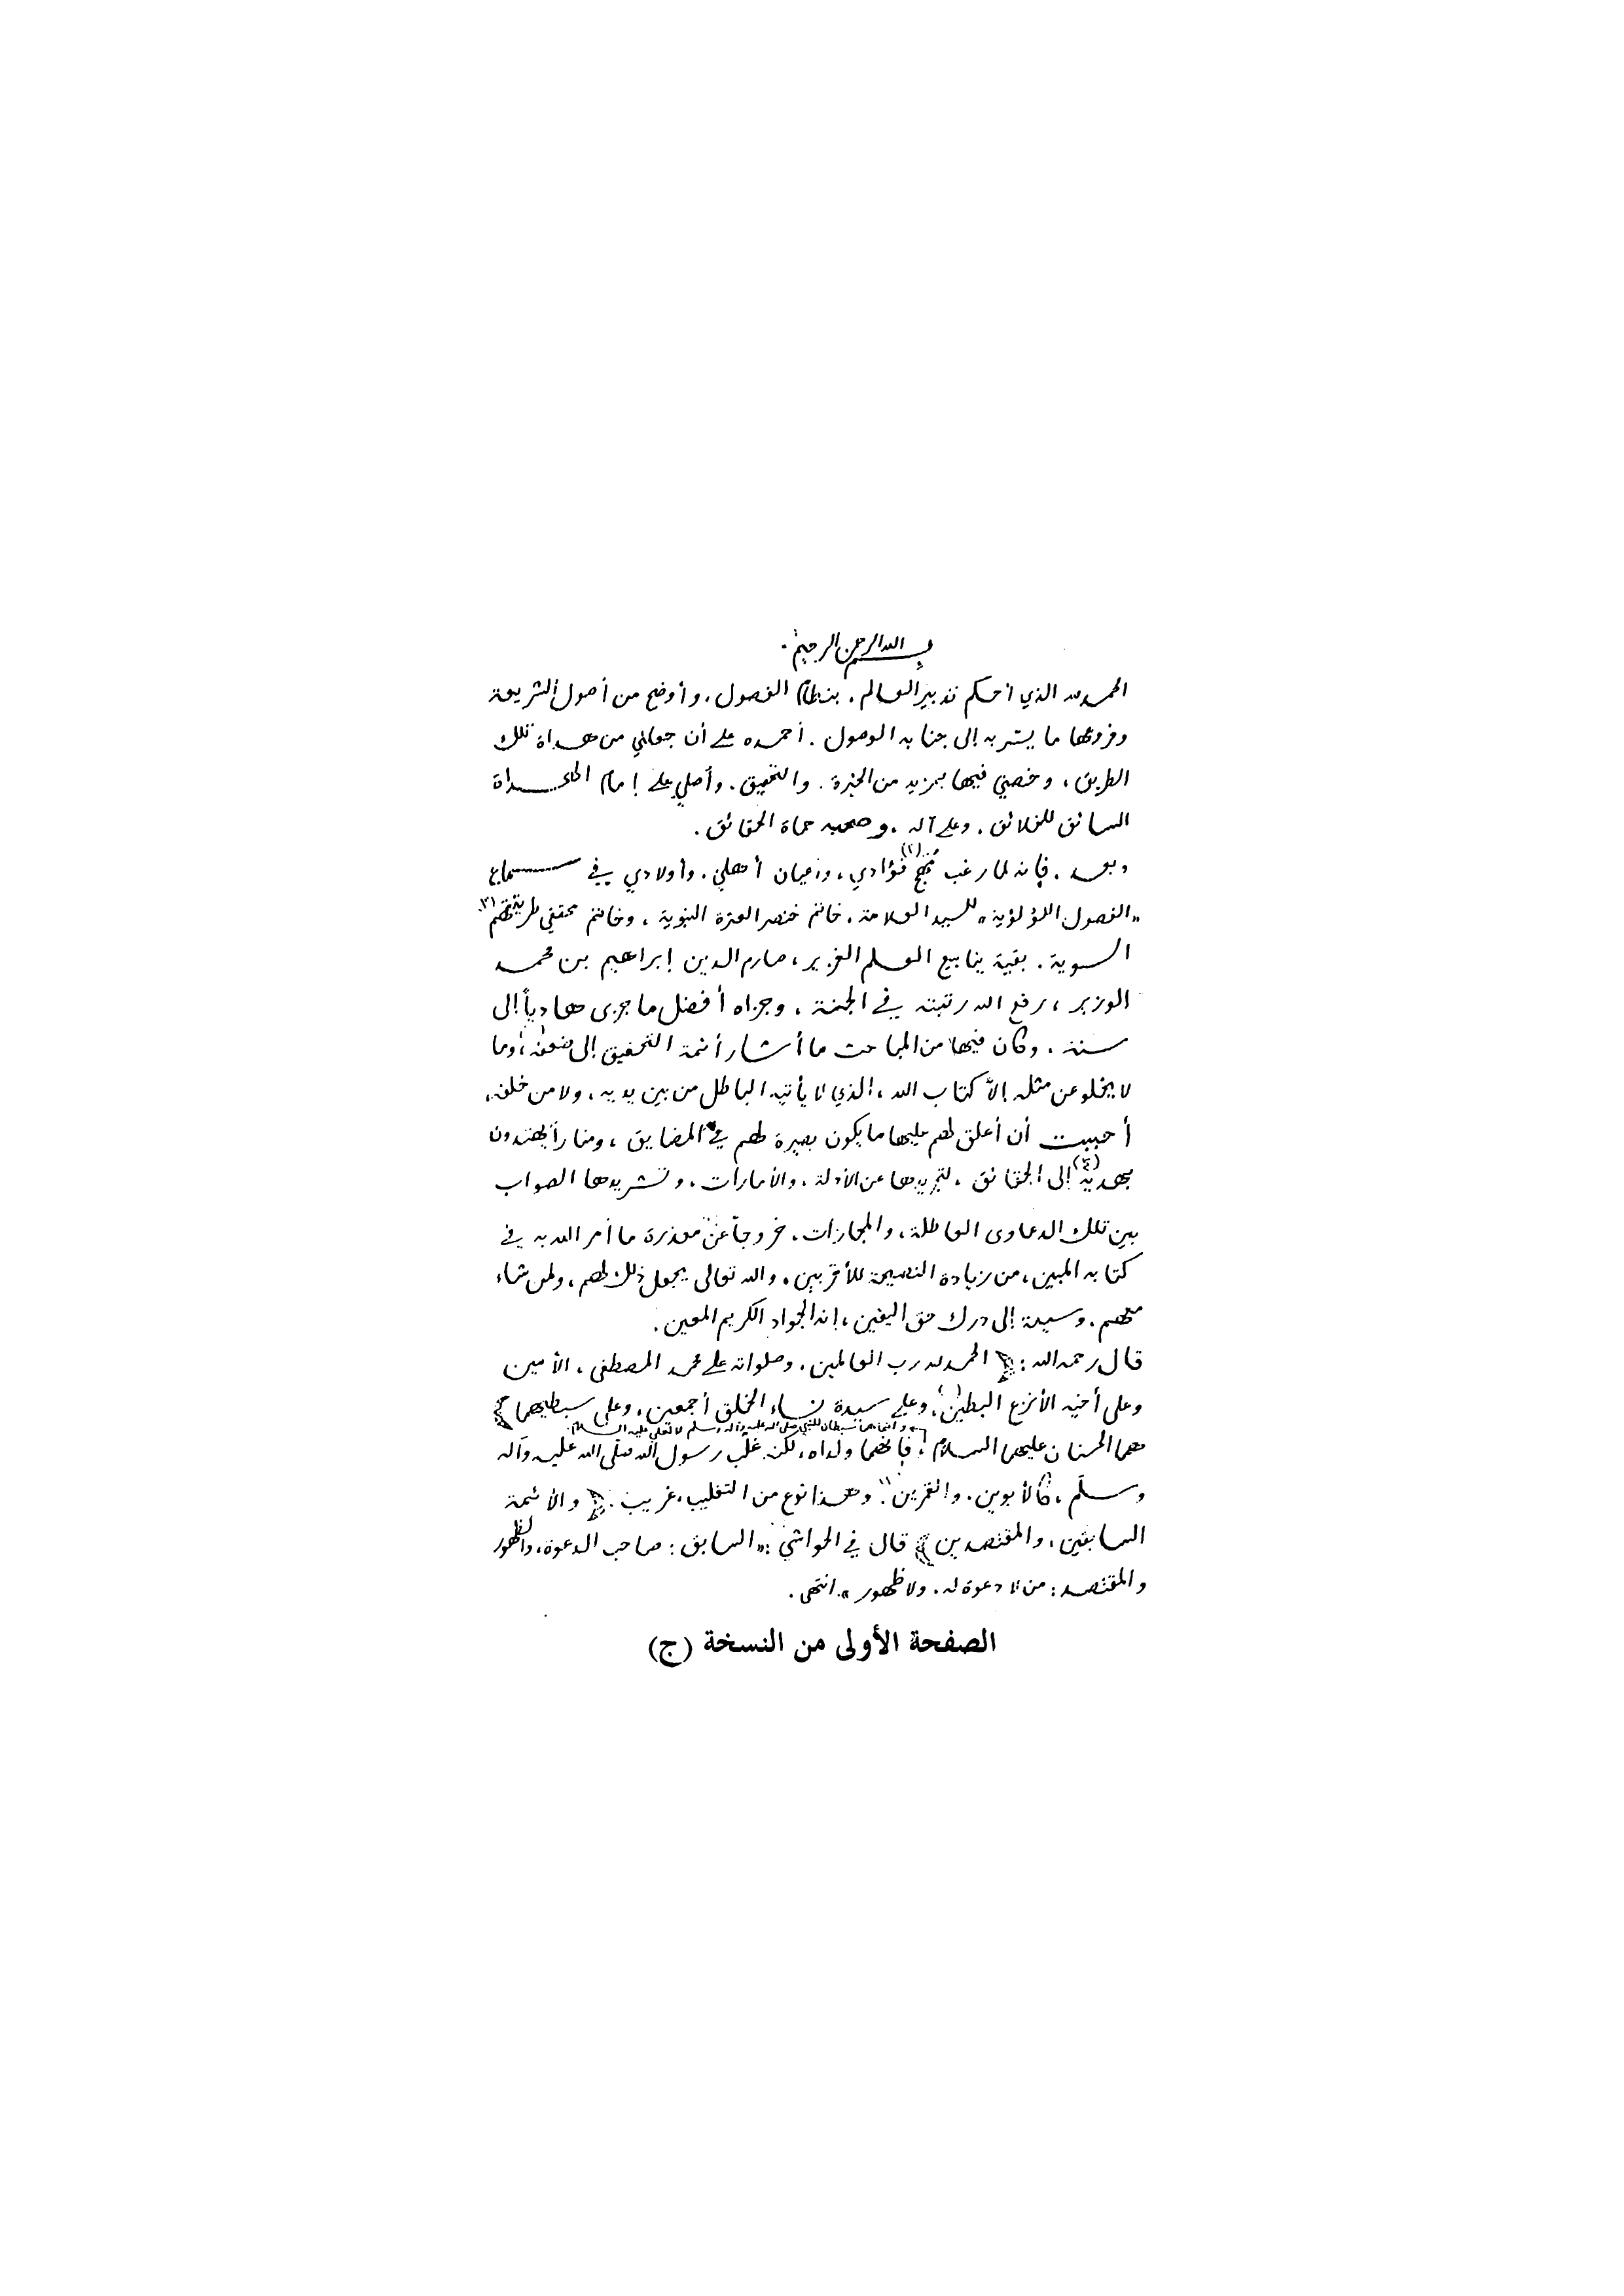 بسم الله الرحمن الرحيم .
الحمد لله الذي أحكم تدبير العالم . بنظام الفصول . وأوضح من أصول الشريعة
وفروعها ما يسر به إلى جنابه الوصول . أحمده على أن جعلني من هداة تلك
الطريق ، وخصني فيها بمزيد من الخبرة . والتحقيق . وأصلي على إمام الهداة
السائق للخلائق . وعلى آله . وصحبه حماة الحقائق .
وبعد . فإنه لما رغب فؤادي (٢) ، وأعيان أهلي . وأولادي في سماع
« الفصول اللؤلؤية » للسيد العلامة . خاتم خنصر العترة النبوية ، وخاتم محققي طريقتهم (٣)
السوية . بقية ينابيع العلم الغزير ، صارم الدين إبراهيم بن محمد
الوزير ، رفع الله رتبته في الجنة ، وجزاه أفضل ما جزى هادياً إلى
سنة . وكان فيها من المباحث ما أشار أئمة التحقيق إلى ضعفه ، وما
لا يخلو عن مثله إلاّ كتاب الله ، الذي لا يأتيه الباطل من بين يديه ، ولا من خلفه ،
أحببت أن أعلق لهم عليها ما يكون بصيرة لهم في المضايق ، ومناراً يهتدون
بهديه (٤) إلى الحقائق . لتجريدها عن الأدلة . والأمارات . وتشريدها الصواب
بين تلك الدعاوى العاطلة ، والمجازات . خروجاً عن معذرة ما أمر الله به في
كتابه المبين ، من زيادة النصيحة للأقربين . والله تعالى يجعل ذلك لهم ، ولمن شاء
منهم . وسيلة إلى درك حق اليقين ، إنه الجواد الكريم المعين .
قال رحمه الله : ﴿ الحمد لله رب العالمين . وصلواته على محمد المصطفى ، الأمين
وعلى أخيه الأنزع البطين ، وعلى سيدة نساء الخلق أجمعين . وعلى سبطيهما ﴾
وإنما هما سبطان للنبي صلى الله عليه وآله وسلم لا لعلي عليه السلام
هما الحسنان عليهما السلام ، فإنهما ولداه ، لكنه غلّب رسول الله صلّى الله عليه وآله
وسلّم ، كالأبوين . والقمرين . وهذا نوع من التغليب . غريب . ﴿ والأئمة
السابقين ، والمقتصدين ﴾ قال في الحواشي : « السابق : صاحب الدعوة ، والظهور
والمقتصد : من لا دعوة له . ولا ظهور » . انتهى .
الصفحة الأولى من النسخة (ج)